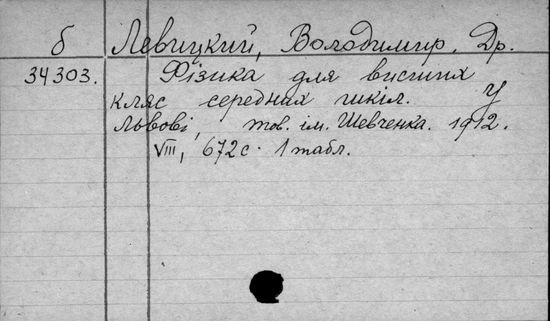 б Левицкий, Володимир, Др.
34303. Фізика для висших
кляс середних шкіл. У
Львові, тов. ім. Шевченка. 1912.
VIII, 672 с. 1 табл.